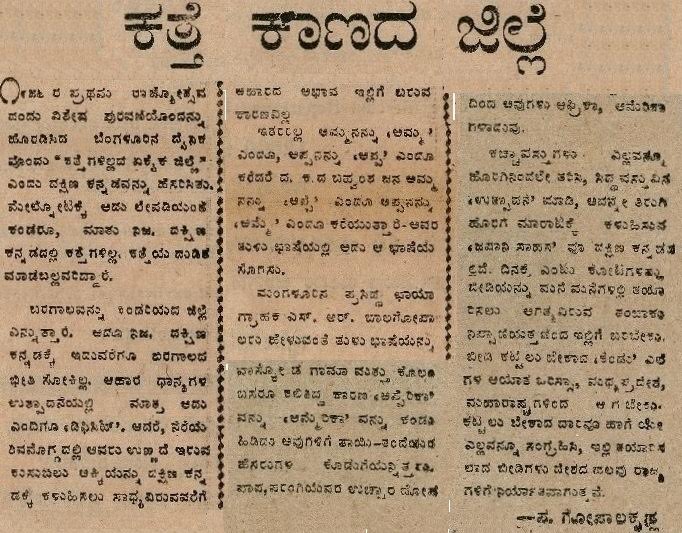 ಕತ್ತೆ ಕಾಣದ ಜಿಲ್ಲೆ
೧೯೫೬ ರ ಪ್ರಥಮ ರಾಜ್ಯೋತ್ಸವ
ದಂದು ವಿಶೇಷ ಪುರವಣಿಯೊಂದನ್ನು
ಹೊರಡಿಸಿದ ಬೆಂಗಳೂರಿನ ದೈನಿಕ
ವೊಂದು "ಕತ್ತೆಗಳಿಲ್ಲದ ಏಕೈಕ ಜಿಲ್ಲೆ"
ಎಂದು ದಕ್ಷಿಣ ಕನ್ನಡವನ್ನು ಹೆಸರಿಸಿತು.
ಮೇಲ್ನೋಟಕ್ಕೆ ಅದು ಲೇವಡಿಯಂತೆ
ಕಂಡರೂ, ಮಾತು ನಿಜ. ದಕ್ಷಿಣ
ಕನ್ನಡದಲ್ಲಿ ಕತ್ತೆಗಳಿಲ್ಲ. ಕತ್ತೆಯ ದುಡಿತ
ಮಾಡಬಲ್ಲವರಿದ್ದಾರೆ.
ಬರಗಾಲವನ್ನು ಕಂಡರಿಯದ ಜಿಲ್ಲೆ
ಎನ್ನುತ್ತಾರೆ. ಅದೂ ನಿಜ. ದಕ್ಷಿಣ
ಕನ್ನಡಕ್ಕೆ ಇದುವರೆಗೂ ಬರಗಾಲದ
ಭೀತಿ ಸೋಕಿಲ್ಲ. ಆಹಾರ ಧಾನ್ಯಗಳ
ಉತ್ಪಾದನೆಯಲ್ಲಿ ಮಾತ್ರ ಅದು
ಎಂದಿಗೂ 'ಡಿಫಿಸಿಟ್'. ಆದರೆ, ನೆರೆಯ
ಶಿವಮೊಗ್ಗದಲ್ಲಿ ಅವರು ಉಣ್ಣದೆ ಇರುವ
ಕುಸುಬಲು ಅಕ್ಕಿಯನ್ನು ದಕ್ಷಿಣ ಕನ್ನ
ಡಕ್ಕೆ ಕಳುಹಿಸಲು ಸಾಧ್ಯವಿರುವವರೆಗೆ
ಆಹಾರದ ಅಭಾವ ಇಲ್ಲಿಗೆ ಬರುವ
ಕಾರಣವಿಲ್ಲ
ಇತರರೆಲ್ಲ ಅಮ್ಮನನ್ನು 'ಅಮ್ಮ'
ಎಂದೂ, ಅಪ್ಪನನ್ನು 'ಅಪ್ಪ' ಎಂದೂ
ಕರೆದರೆ ದ. ಕ.ದ ಬಹ್ವಂಶ ಜನ ಅಮ್ಮ
ನನ್ನು 'ಅಪ್ಪೆ' ಎಂದೂ ಅಪ್ಪನನ್ನು
'ಅಮ್ಮೆ' ಎಂದೂ ಕರೆಯುತ್ತಾರೆ-ಅವರ
ತುಳು ಭಾಷೆಯಲ್ಲಿ. ಅದು ಆ ಭಾಷೆಯ
ಸೊಗಸು.
ಮಂಗಳೂರಿನ ಪ್ರಸಿದ್ಧ ಛಾಯಾ
ಗ್ರಾಹಕ ಎಸ್. ಆರ್. ಬಾಲಗೋಪಾ
ಲರು ಹೇಳುವಂತೆ ತುಳು ಭಾಷೆಯನ್ನು
ವಾಸ್ಕೋಡ ಗಾಮಾ ಮತ್ತು ಕೊಲಂ
ಬಸರೂ ಕಲಿತಿದ್ದ ಕಾರಣ 'ಅಪ್ಪೆರಿಕಾ'
ವನ್ನು 'ಅಮ್ಮೆರಿಕಾ' ವನ್ನು ಕಂಡು
ಹಿಡಿದು ಅವುಗಳಿಗೆ ತಾಯಿ-ತಂದೆಯರ
ಹೆಸರುಗಳ ಕೊಡುಗೆಯನ್ನಿತ್ತರು.
ಪಾಪ, ಪರಂಗಿಯವರ ಉಚ್ಚಾರ ದೋಷ
ದಿಂದ ಅವುಗಳು ಆಫ್ರಿಕಾ, ಅಮೆರಿಕಾ
ಗಳಾದುವು.
ಕಚ್ಚಾವಸ್ತುಗಳು ಎಲ್ಲವನ್ನೂ
ಹೊರಗಿನಿಂದಲೇ ತರಿಸಿ, ಸಿದ್ಧ ವಸ್ತುವಿನ
'ಉತ್ಪಾದನೆ' ಮಾಡಿ, ಅದನ್ನೇ ತಿರುಗಿ
ಹೊರಗೆ ಮಾರಾಟಕ್ಕೆ ಕಳುಹಿಸುವ
'ಜಪಾನಿ ಸಾಹಸ' ವೂ ದಕ್ಷಿಣ ಕನ್ನಡಕ್ಕೆ
ದಿನಕ್ಕೆ ಎಂಟು ಕೋಟಿಗಳಷ್ಟು
ಬೀಡಿಯನ್ನು ಮನೆ ಮನೆಗಳಲ್ಲಿ ತಯಾ
ರಿಸಲು ಅಗತ್ಯವಿರುವ ತಂಬಾಕು
ನಿಪ್ಪಾಣಿಯತ್ತಣಿಂದ ಇಲ್ಲಿಗೆ ಬರಬೇಕು.
ಬೀಡಿ ಕಟ್ಟಲು ಬೇಕಾದ 'ಕೆಂಡು' ಎಲೆ
ಗಳ ಆಯಾತ ಒರಿಸ್ಸಾ, ಮಧ್ಯಪ್ರದೇಶ,
ಮಹಾರಾಷ್ಟ್ರಗಳಿಂದ ಆಗಬೇಕು.
ಕಟ್ಟಲು ಬೇಕಾದ ದಾರವೂ ಹಾಗೆಯೇ
ಎಲ್ಲವನ್ನೂ ಸಂಗ್ರಹಿಸಿ, ಇಲ್ಲಿ ತಯಾರಿಸ
ಲಾದ ಬೀಡಿಗಳು ದೇಶದ ಹಲವು ರಾಜ್ಯ
ಗಳಿಗೆ ನಿರ್ಯಾತವಾಗುತ್ತವೆ.
—ಪ. ಗೋಪಾಲಕೃಷ್ಣ